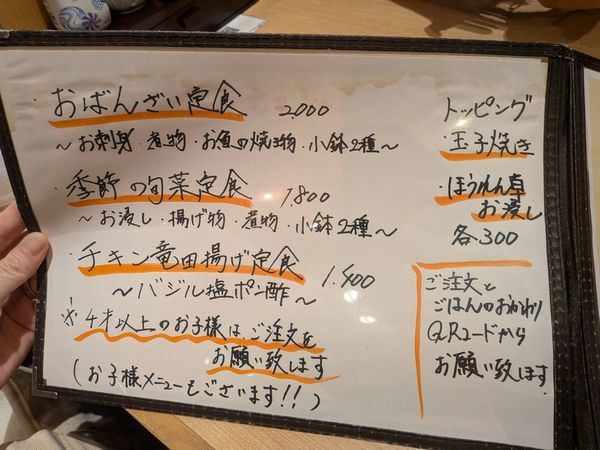 ・おばんざい定食 2,000
〜お刺身・煮物・お魚の焼き物・小鉢2種〜
・季節の旬菜定食 1,800
〜お浸し・揚げ物・煮物・小鉢2種〜
・チキン竜田揚げ定食 1,400
〜バジル塩ポン酢〜
※4才以上のお子様は、ご注文を
お願い致します
(お子様メニューもございます!!)
トッピング
・玉子焼き
・ほうれん草
お浸し
各300
ご注文と
ごはんのおかわり
QRコードから
お願い致します